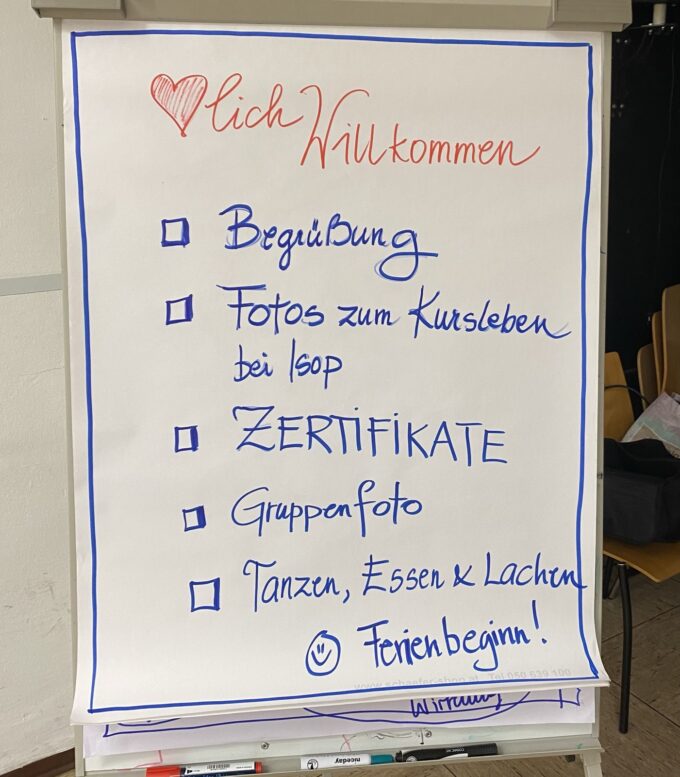 ❤lich Willkommen
☐ Begrüßung
☐ Fotos zum Kursleben
bei Isop
☐ ZERTIFIKATE
☐ Gruppenfoto
☐ Tanzen, Essen & Lachen
☺ Ferienbeginn!
www.schaefer-shop.at Tel 050 639 100
niceday